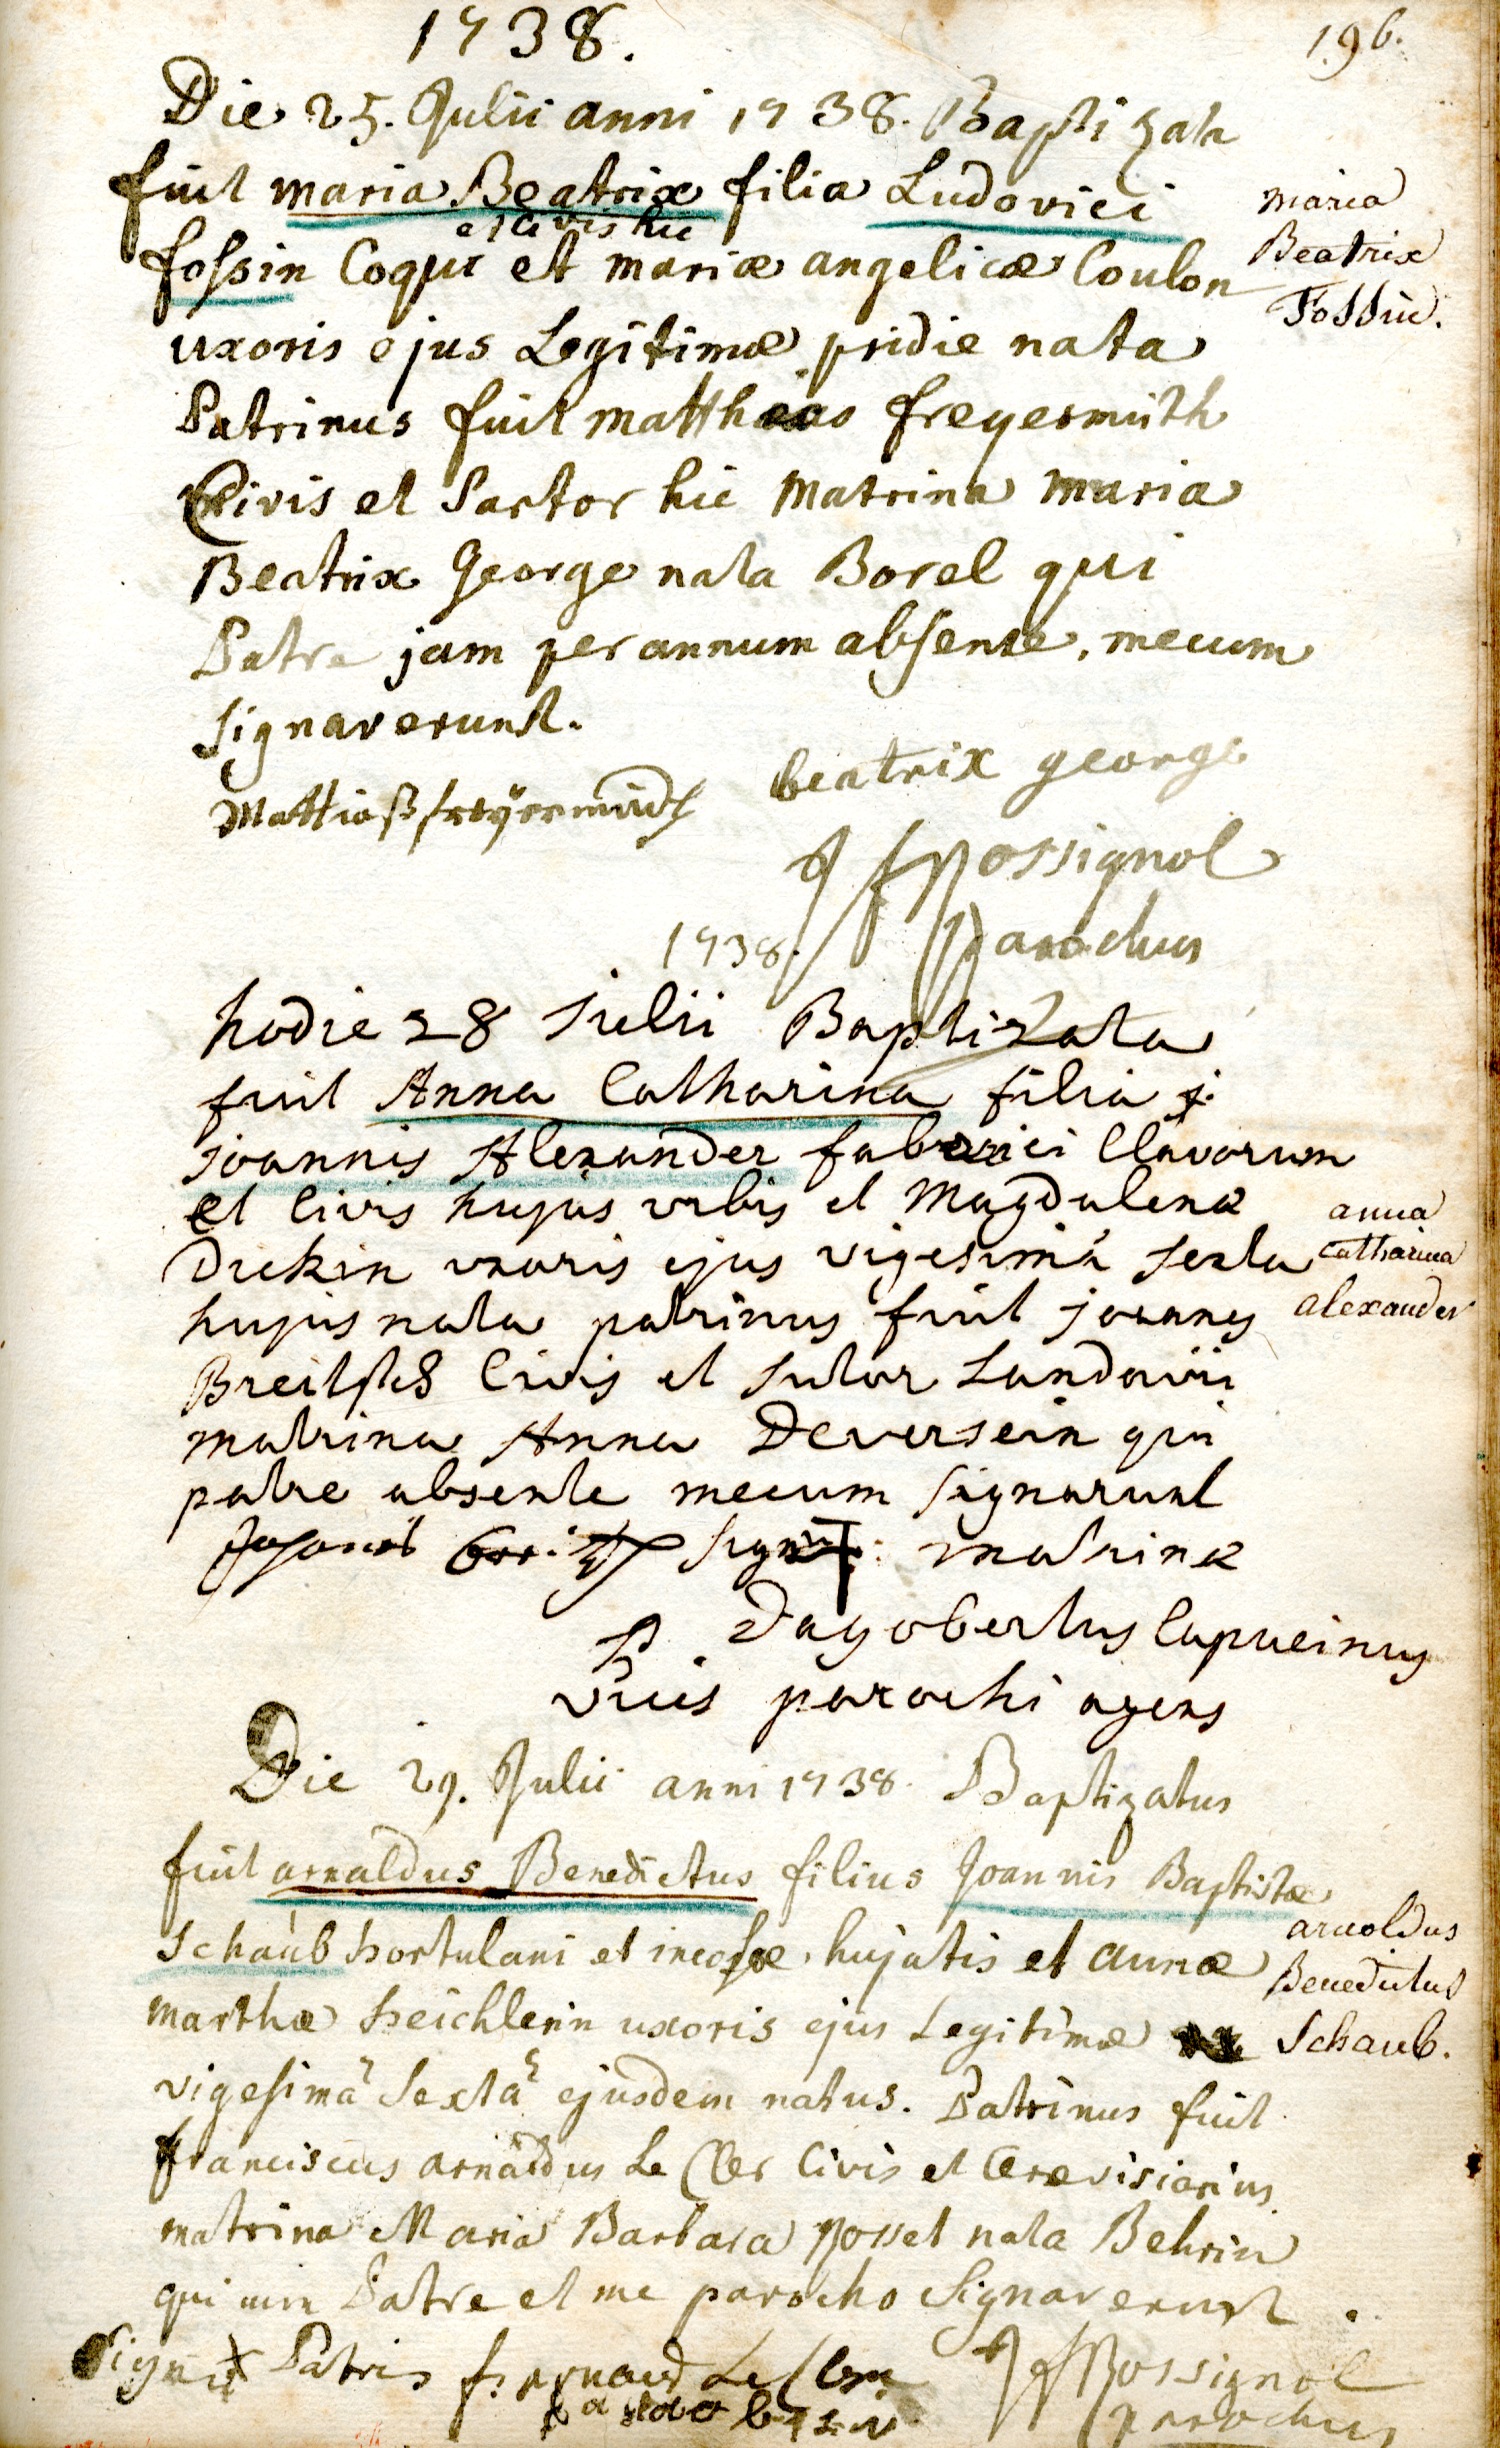 1738.
196.
Die 25. Julii anni 1738. Baptizata
fuit maria Beatrix filia Ludovici
et civis hic
fossin Coqui et mariæ angelicæ Coulon
uxoris ejus Legitimæ pridie nata
Patrinus fuit matthias freyermuth
Civis et Sartor hic Matrina maria
Beatrix George nata Borel qui
Patre jam per annum absente, mecum
signaverunt.
maria
Beatrix
Fossin.
Mattiaß freÿermudh
beatrix george
J f Rossignol
parochus
1738.
hodie 28 Julii Baptizata
fuit Anna Catharina filia
Joannis Alexander fabrici Clavorum
et Civis hujus urbis et Magdalenæ
Dickin uxoris ejus vigesimâ sexta
hujus nata patrinus fuit joannes
Civis et sutor Landavii
matrina Anna Deversein qui
patre absente mecum signarunt
anna
Catharina
alexander
Sign: matrinæ
P. Dagobertus Capucinus
vices parochi agens
Die 29. Julii anni 1738. Baptizatus
fuit arnaldus Benedictus filius Joannis Baptistæ
Schaub hortulani et incolæ hujatis et annæ
marthæ heichlerin uxoris ejus Legitimæ
vigesimâ Sextâ ejusdem natus. Patrinus fuit
franciscus arnaldus Le Clerc Civis et Cerevisiarius
matrina Maria Barbara Rosset nata Behrin
qui cum Patre et me parocho Signaverunt.
arnoldus
Benedictus
Schaub.
Signũ Patris fr arnaud Le Clerc
J f Rossignol
parochus